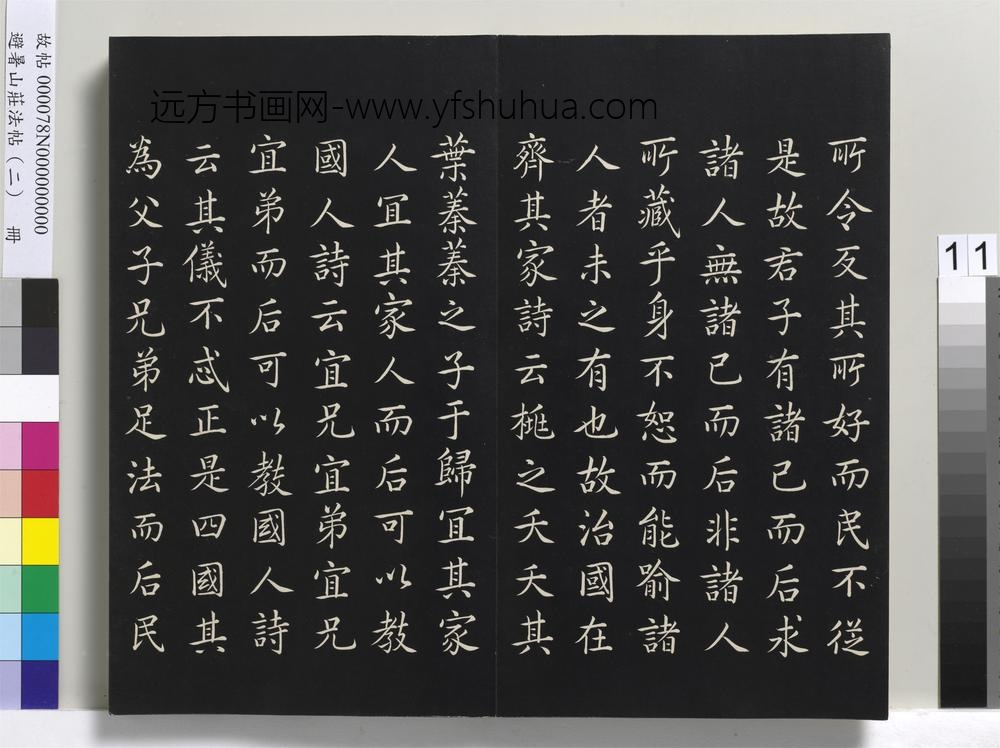 所令反其所好而民不從
是故君子有諸己而后求
諸人無諸己而后非諸人
所藏乎身不恕而能喻諸
人者未之有也故治國在
齊其家詩云桃之夭夭其
葉蓁蓁之子于歸宜其家
人宜其家人而后可以教
國人詩云宜兄宜弟宜兄
宜弟而后可以教國人詩
云其儀不忒正是四國其
為父子兄弟足法而后民
远方书画网-www.yfshuhua.com
故帖 000078N000000000
避暑山莊法帖（二） 冊
11